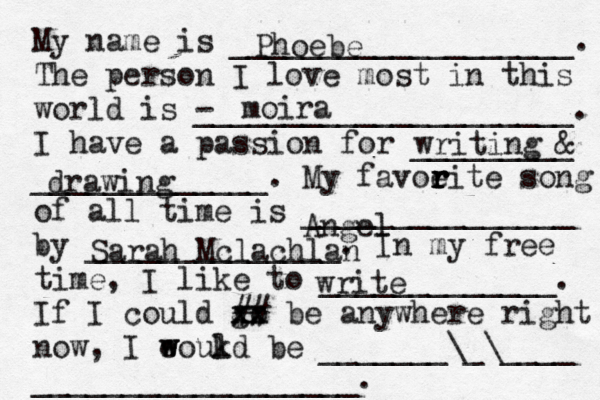 My name is Phoebe.
The person I love most in this
world is - moira.
I have a passion for writing &
drawing. My favorite song
of all time is Angel
by Sarah Mclachlan. In my free
time, I like to write.
If I could ## be anywhere right
now, I would be \_\
.